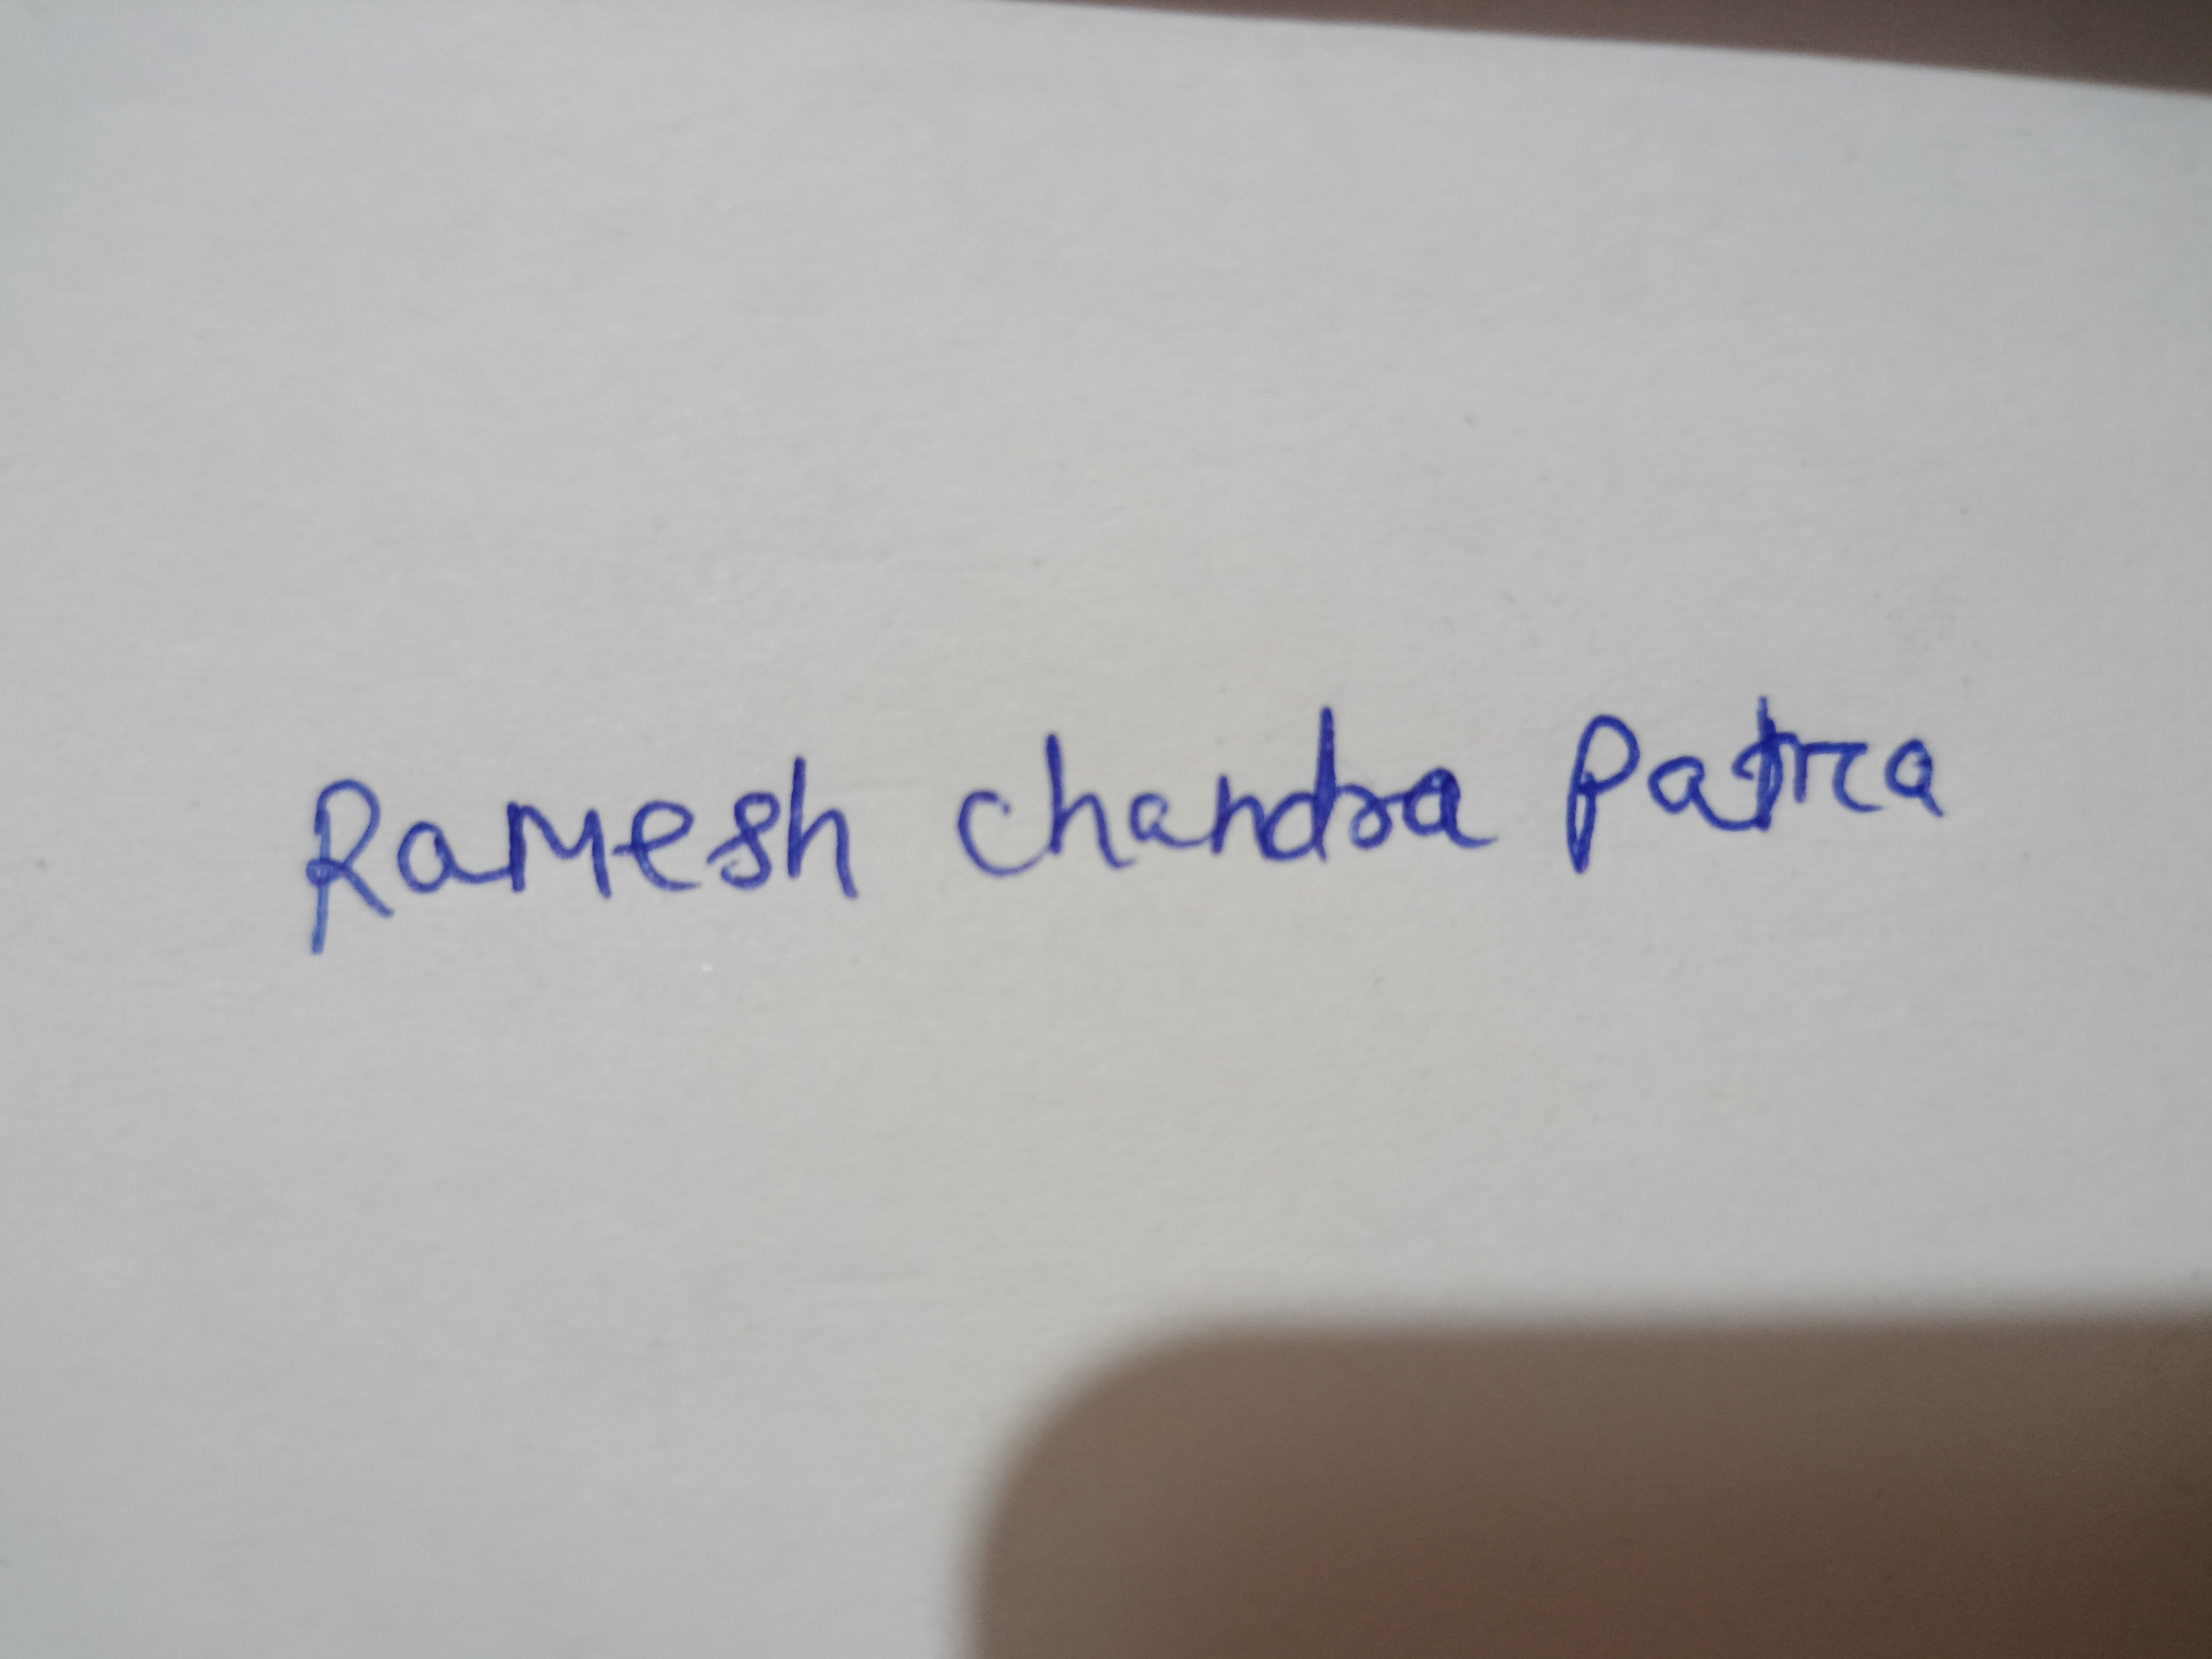 Ramesh chandra Patra